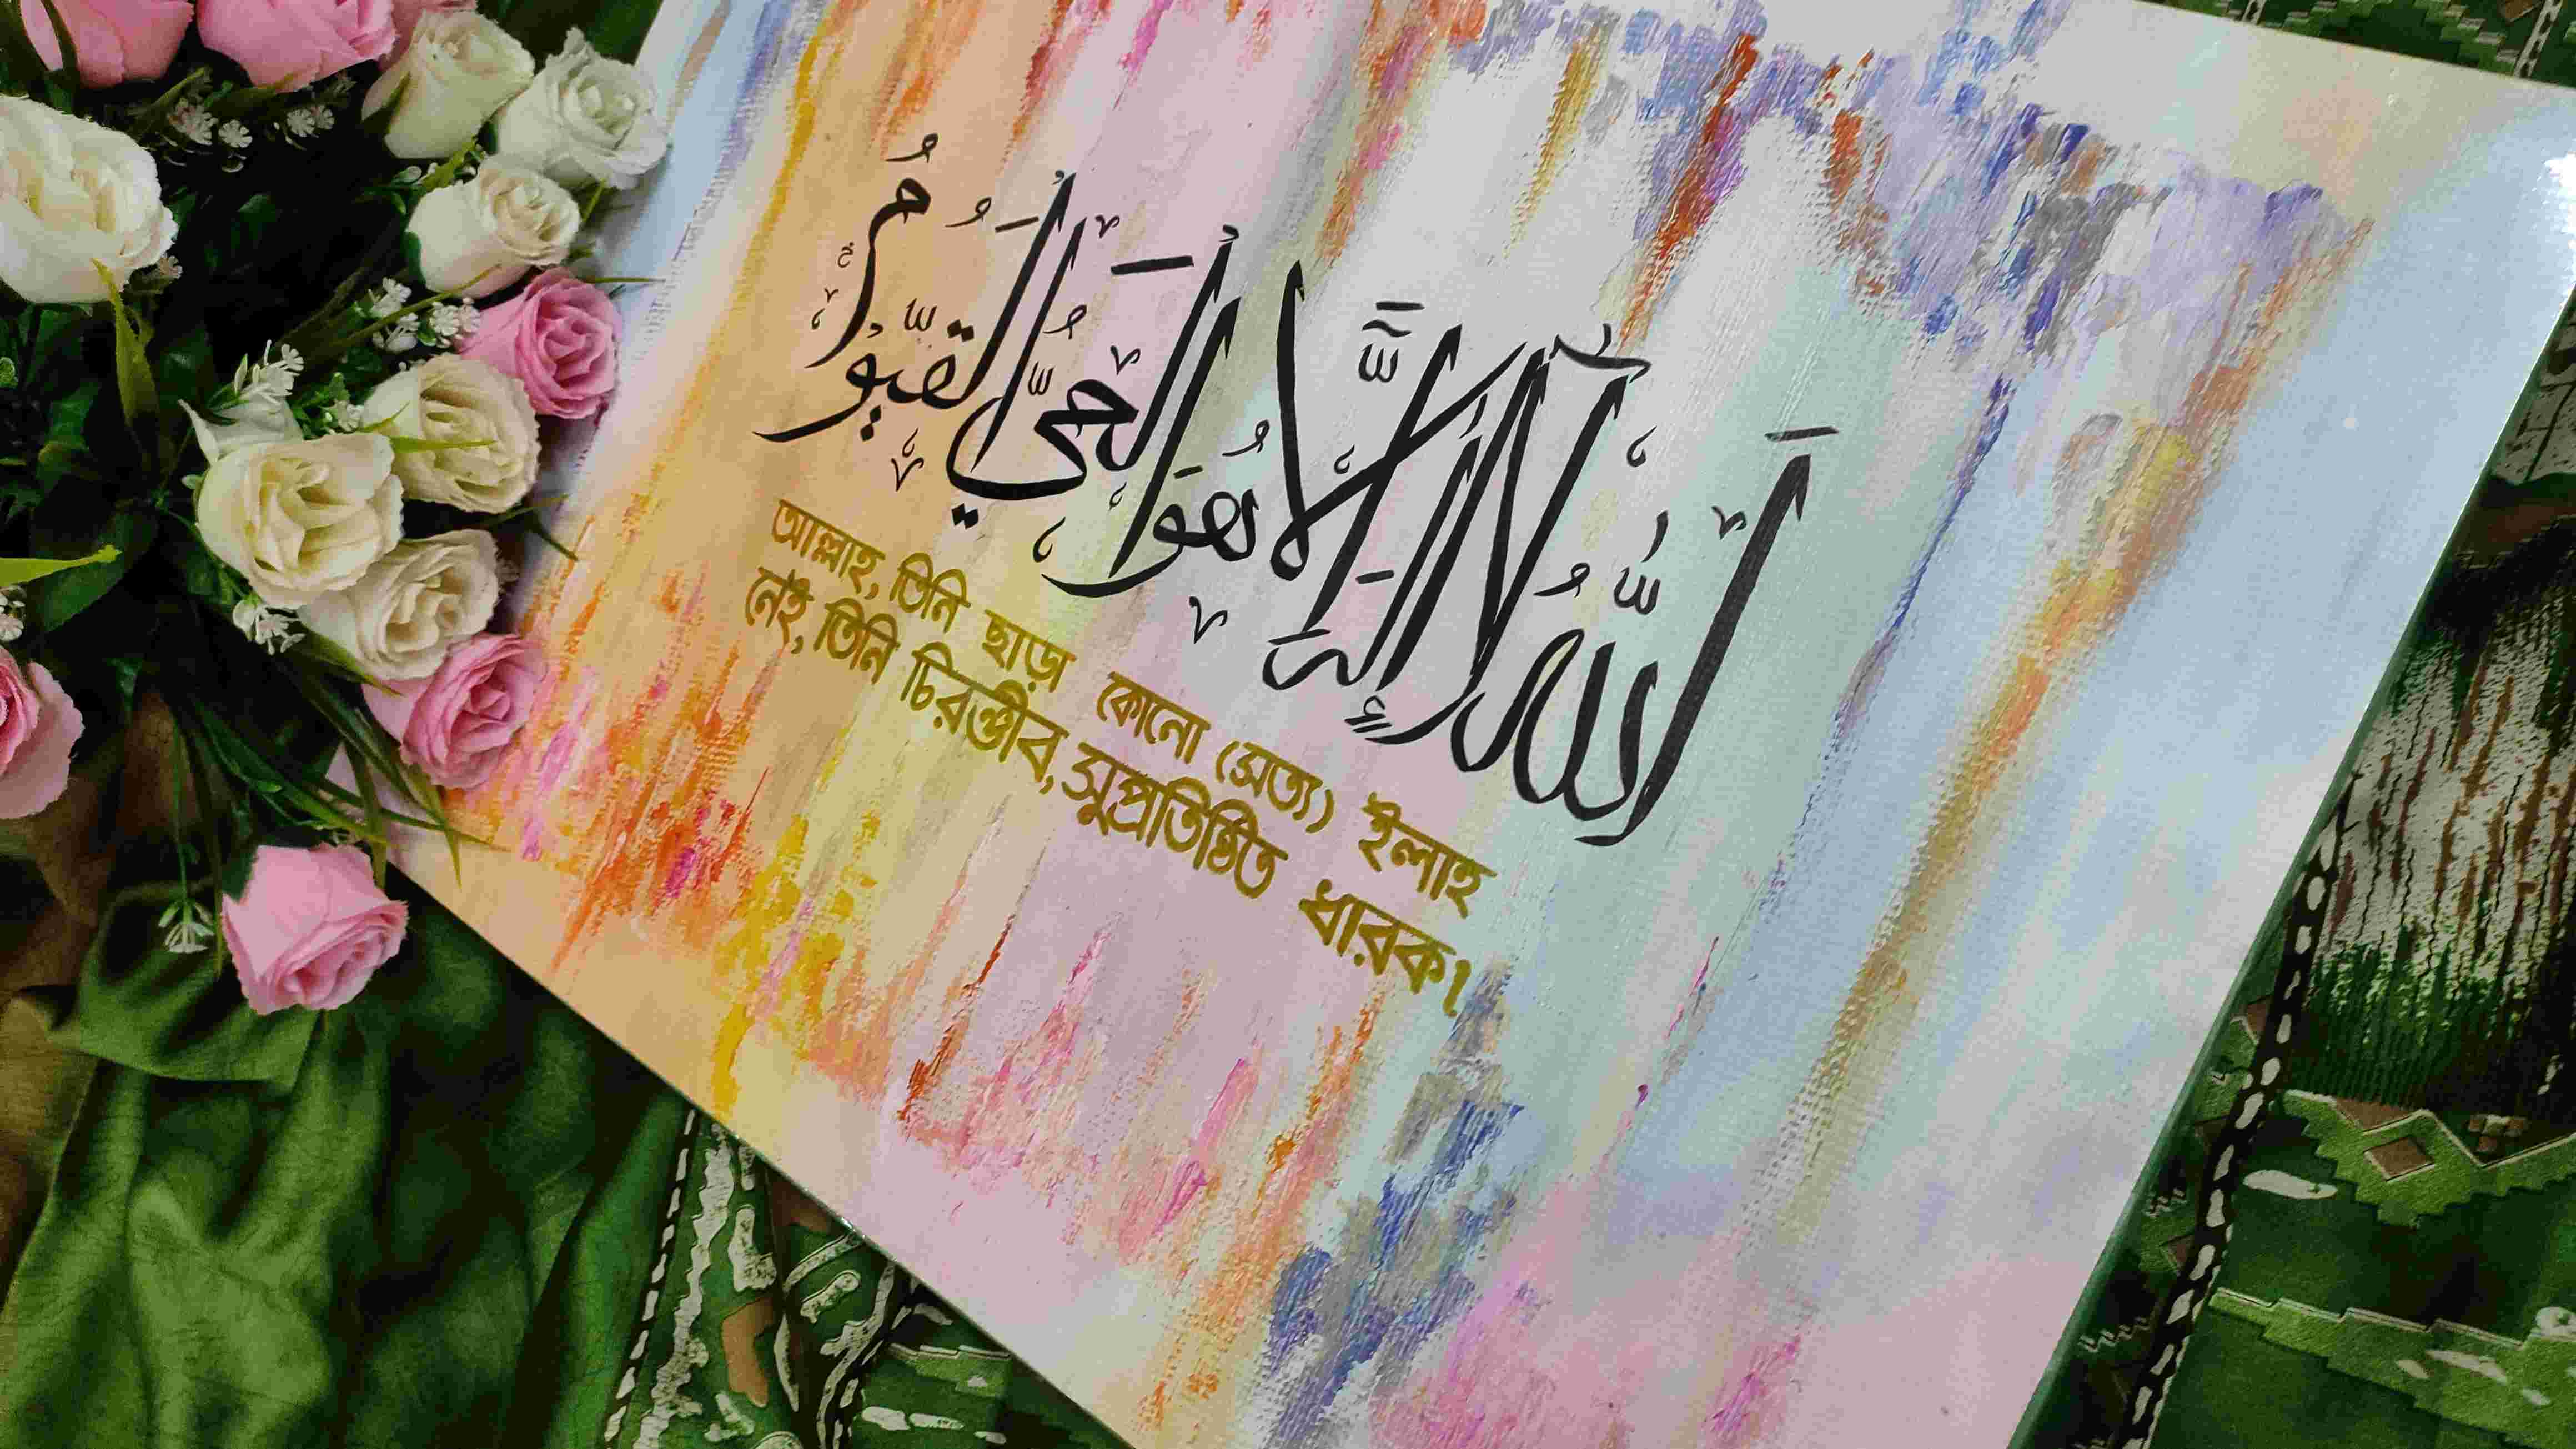 اَللّٰهُ لَآ اِلٰهَ اِلَّا هُوَ الْحَيُّ الْقَيُّوْمُ
আল্লাহ, তিনি ছাড়া কোনো (সত্য) ইলাহ
নেই, তিনি চিরঞ্জীব, সুপ্রতিষ্ঠিত ধারক।